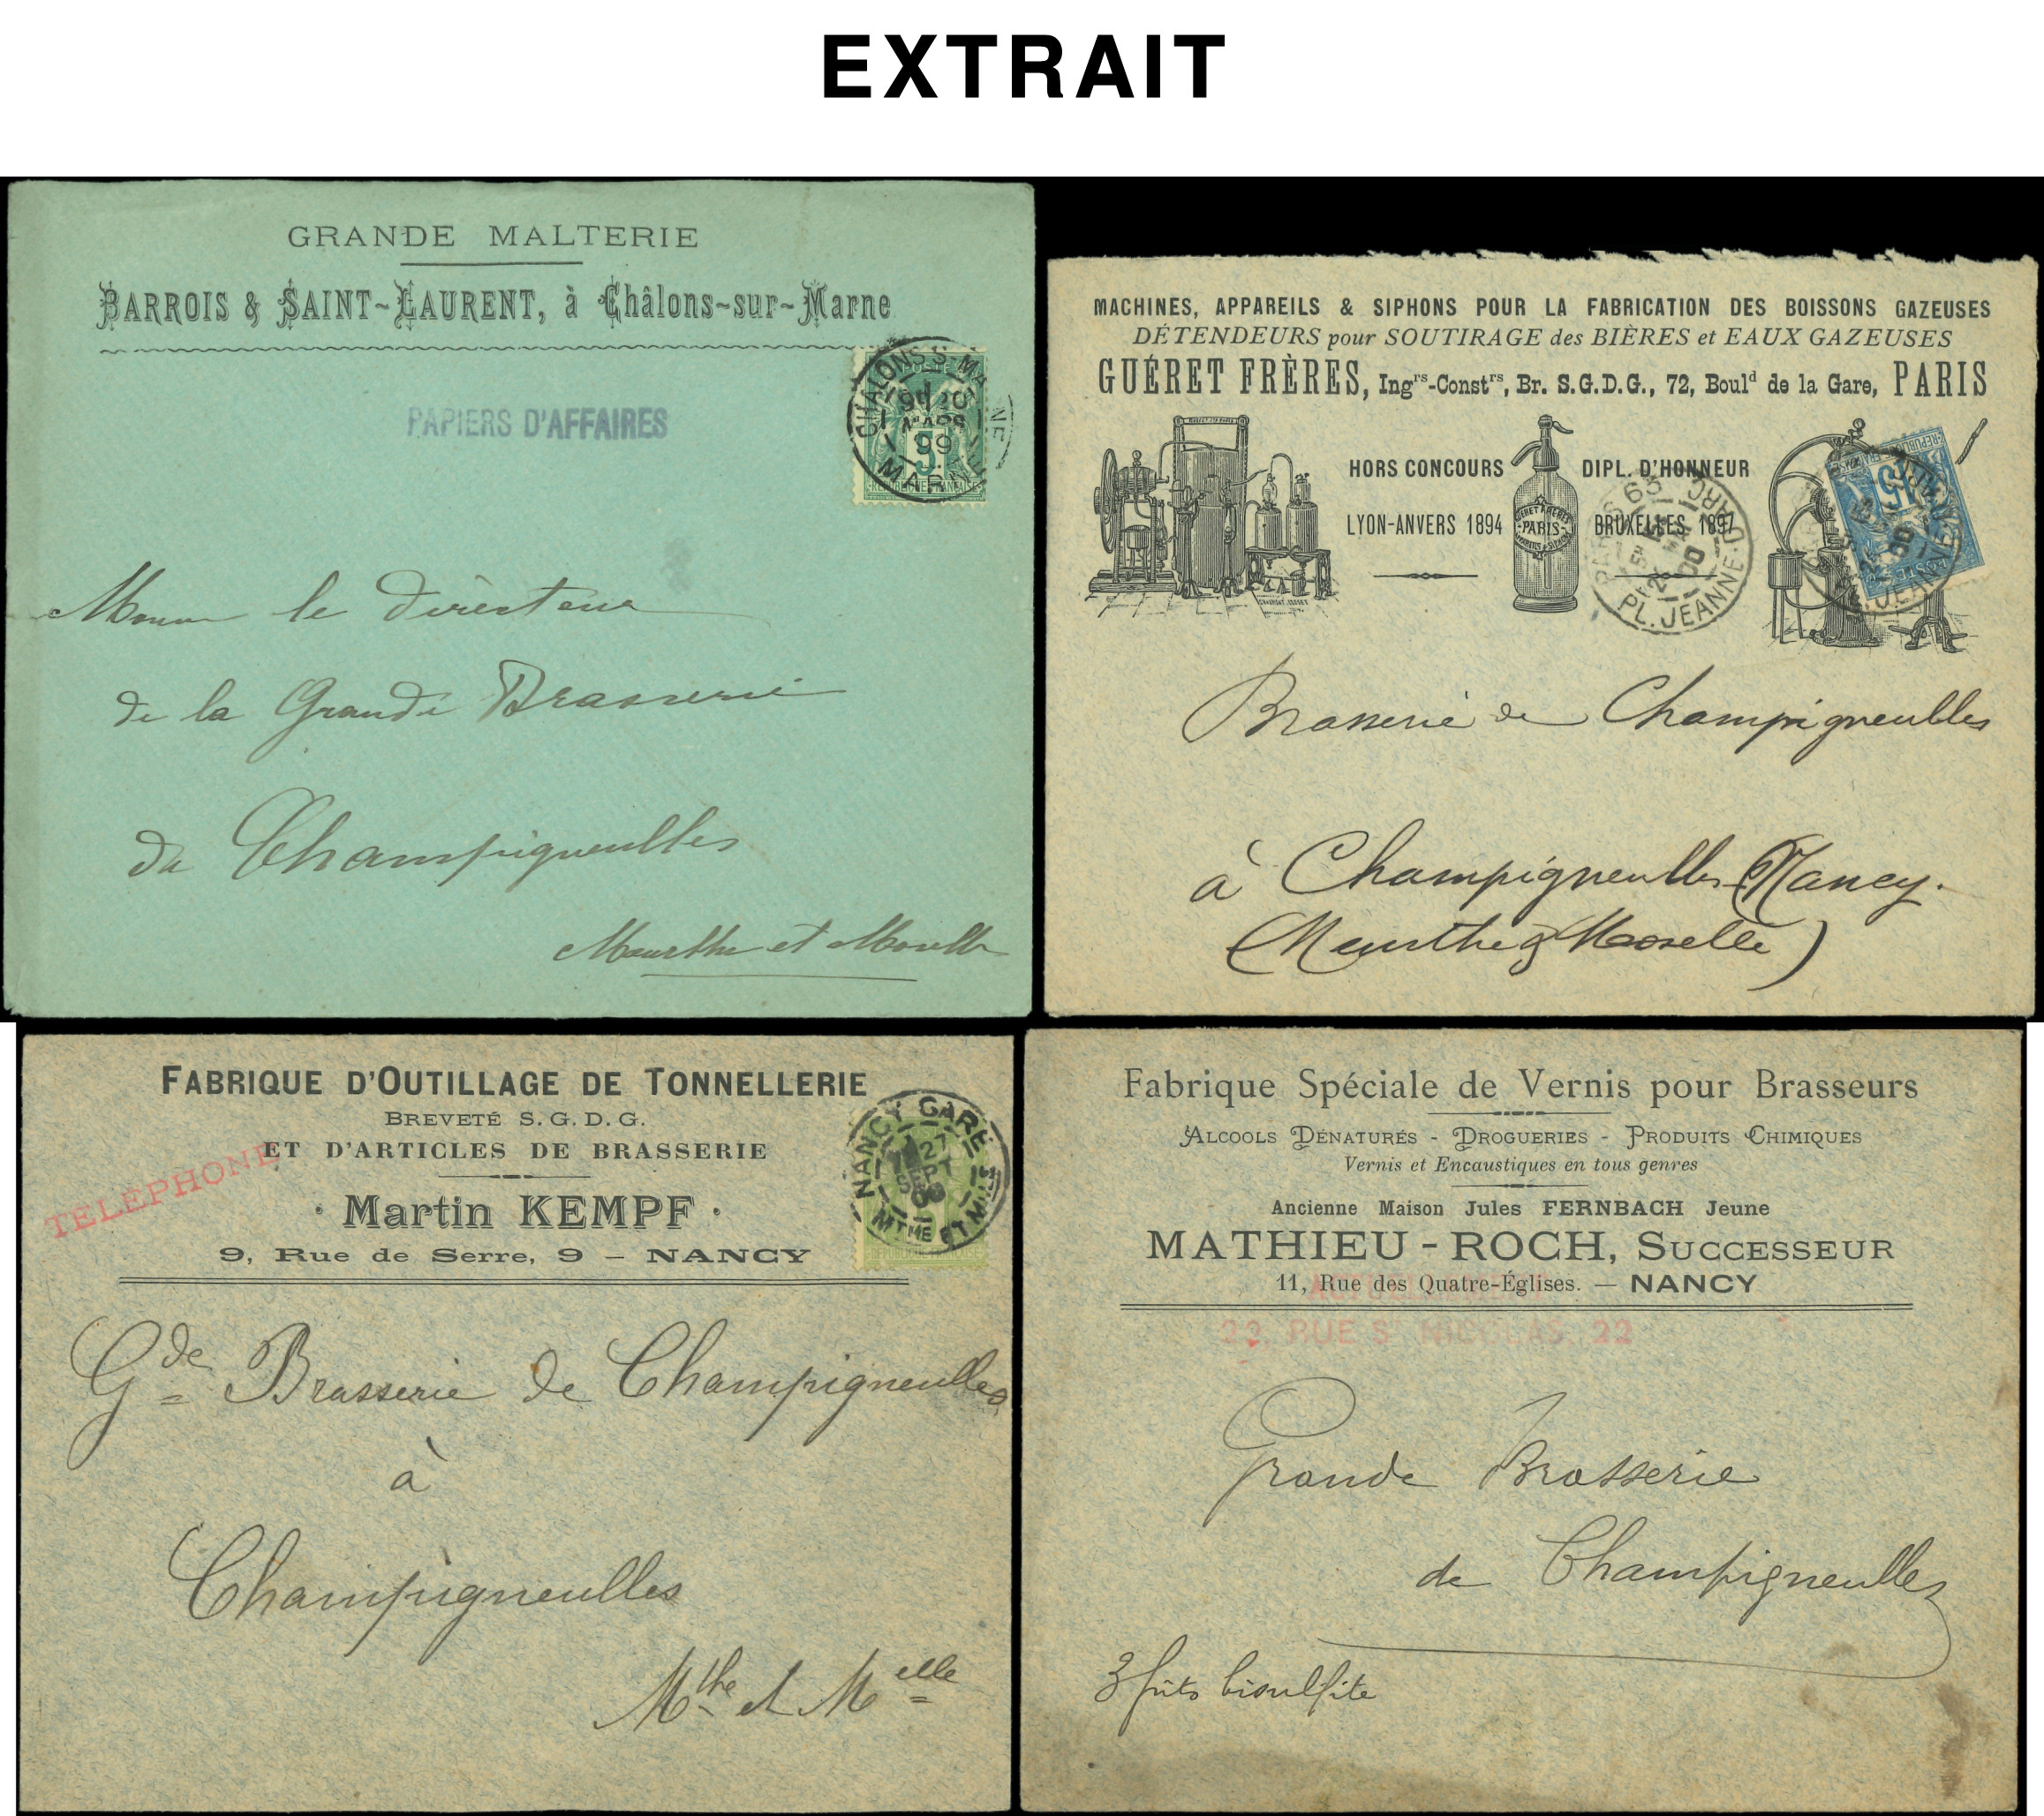 EXTRAIT
GRANDE MALTERIE
BARROIS & SAINT-LAURENT, à Châlons-sur-Marne
PAPIERS D'AFFAIRES
CHALONS S-MARNE
MARS
99
MARNE
5
RÉPUBLIQUE FRANÇAISE
le directeur
de la Grande Brasserie
de Champigneulles
Meurthe et Moselle
MACHINES, APPAREILS & SIPHONS POUR LA FABRICATION DES BOISSONS GAZEUSES
DÉTENDEURS pour SOUTIRAGE des BIÈRES et EAUX GAZEUSES
GUÉRET FRÈRES, Ingrs-Constrs, Br. S.G.D.G., 72, Bould de la Gare, PARIS
HORS CONCOURS
DIPL. D'HONNEUR
LYON-ANVERS 1894
BRUXELLES 1897
PARIS
15
PARIS 63
00
PL. JEANNE D'ARC
Brasserie de Champigneulles
à Champigneulles-Nancy.
(Meurthe & Moselle)
FABRIQUE D'OUTILLAGE DE TONNELLERIE
BREVETÉ S. G. D. G.
ET D'ARTICLES DE BRASSERIE
TELEPHONE
· Martin KEMPF ·
9, Rue de Serre, 9 – NANCY
NANCY GARE
27
SEPT
00
MTHE ET MLLE
Gde Brasserie de Champigneulles
à
Champigneulles
Mthe et Melle
Fabrique Spéciale de Vernis pour Brasseurs
ALCOOLS DÉNATURÉS - DROGUERIES - PRODUITS CHIMIQUES
Vernis et Encaustiques en tous genres
Ancienne Maison Jules FERNBACH Jeune
MATHIEU - ROCH, SUCCESSEUR
11, Rue des Quatre-Églises. — NANCY
22, RUE St NICOLAS, 22
Grande Brasserie
de Champigneulles
3 fûts bisulfite